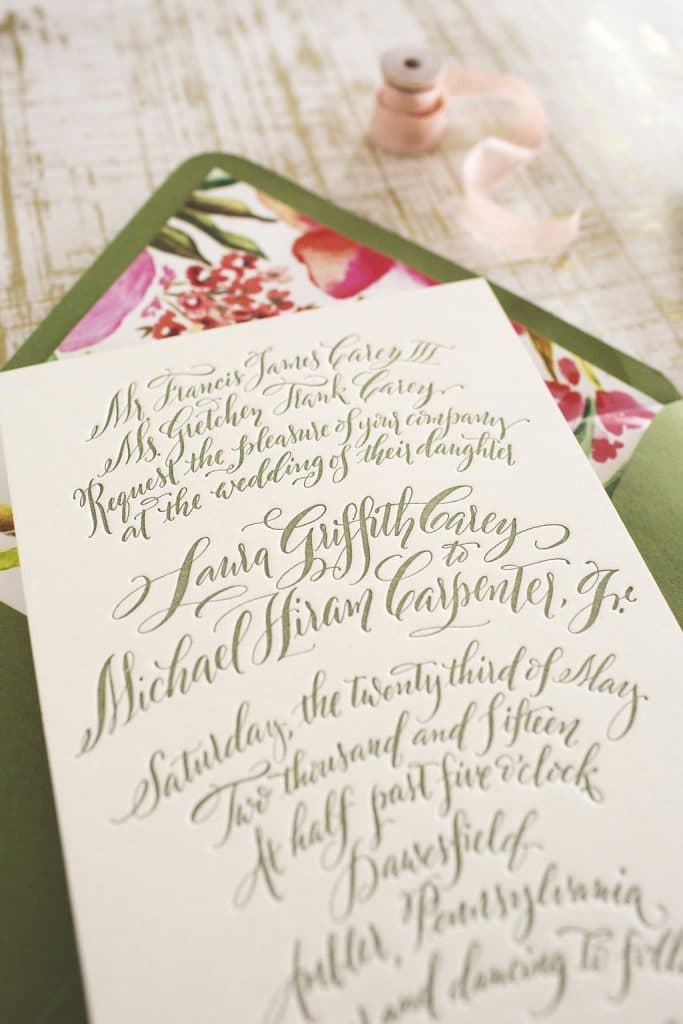 Mr Francis James Carey III
Ms. Gretchen Frank Carey
Request the pleasure of your company
at the wedding of their daughter
Laura Griffith Carey
to
Michael Hiram Carpenter, Jr.
Saturday, the twenty third of May
Two thousand and fifteen
At half past five o'clock
Dawesfield
Ambler, Pennsylvania
and dancing to